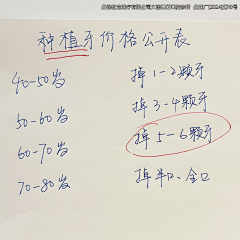 种植牙价格公开表
40-50岁 掉1-2颗牙
50-60岁 掉3-4颗牙
60-70岁 掉5-6颗牙
70-80岁 掉半口、全口